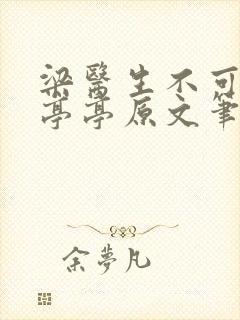 梁醫生不可
亭亭原文筆
余夢凡